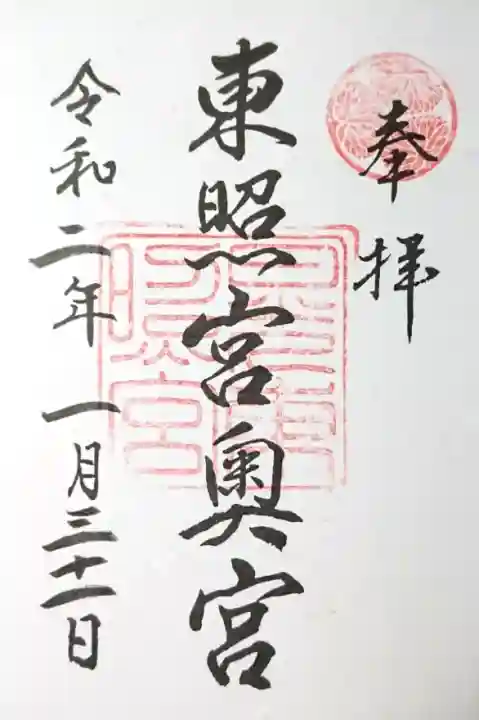 奉拝
東照宮奥宮
令和二年 一月三十一日